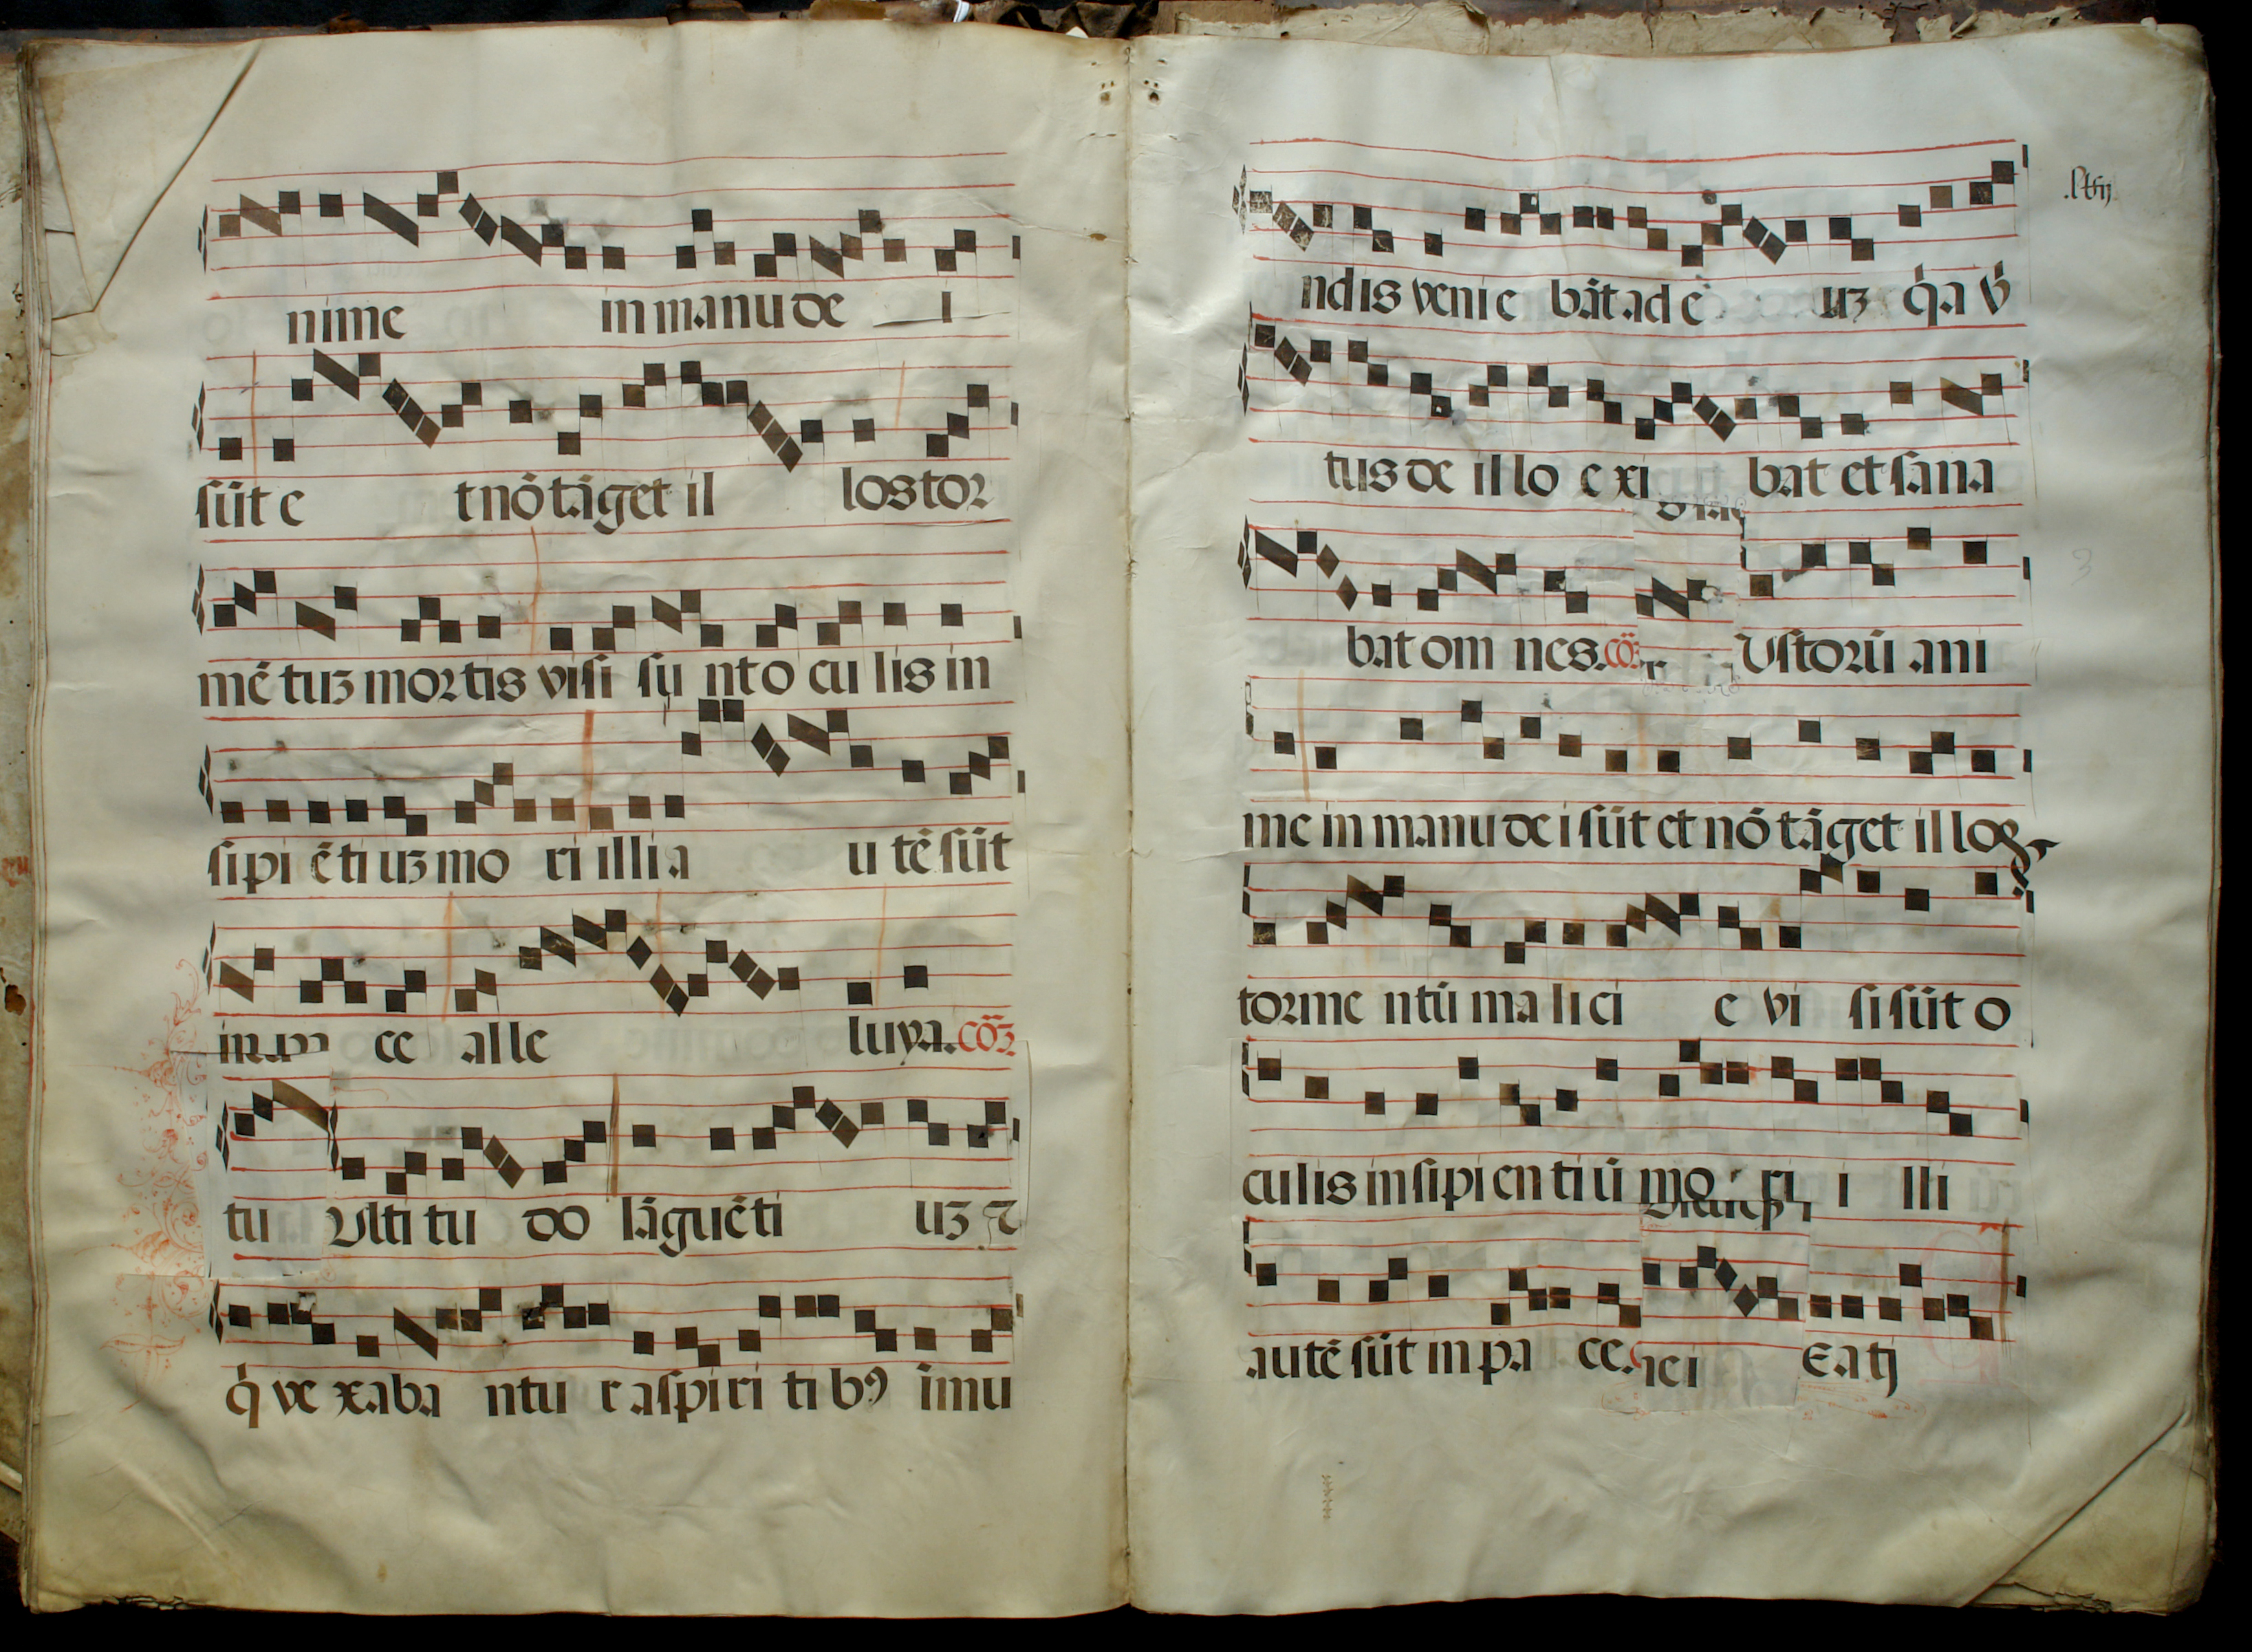 nime in manu de i
sūt e t nō tāget il los tor
mētuʒ mortis visi sunt oculis in
sipiētiuʒ mori illi a u tē sūt
in pa ce alle luya. cōʒ
tu Ulti tu do lāguēti uʒ
q̇ vexaba ntu r a spiriti bꝰ imu
ndis venie bāt ad e uʒ q̇a v̇
tus de illo exi bat et sana
bat om nes. cō Ustorū ani
me in manu dei sūt et nō tāget illos
torme ntū malici e vi si sūt o
culis insipientiū mo ri i lli
autē sūt in pa ce. Eatj